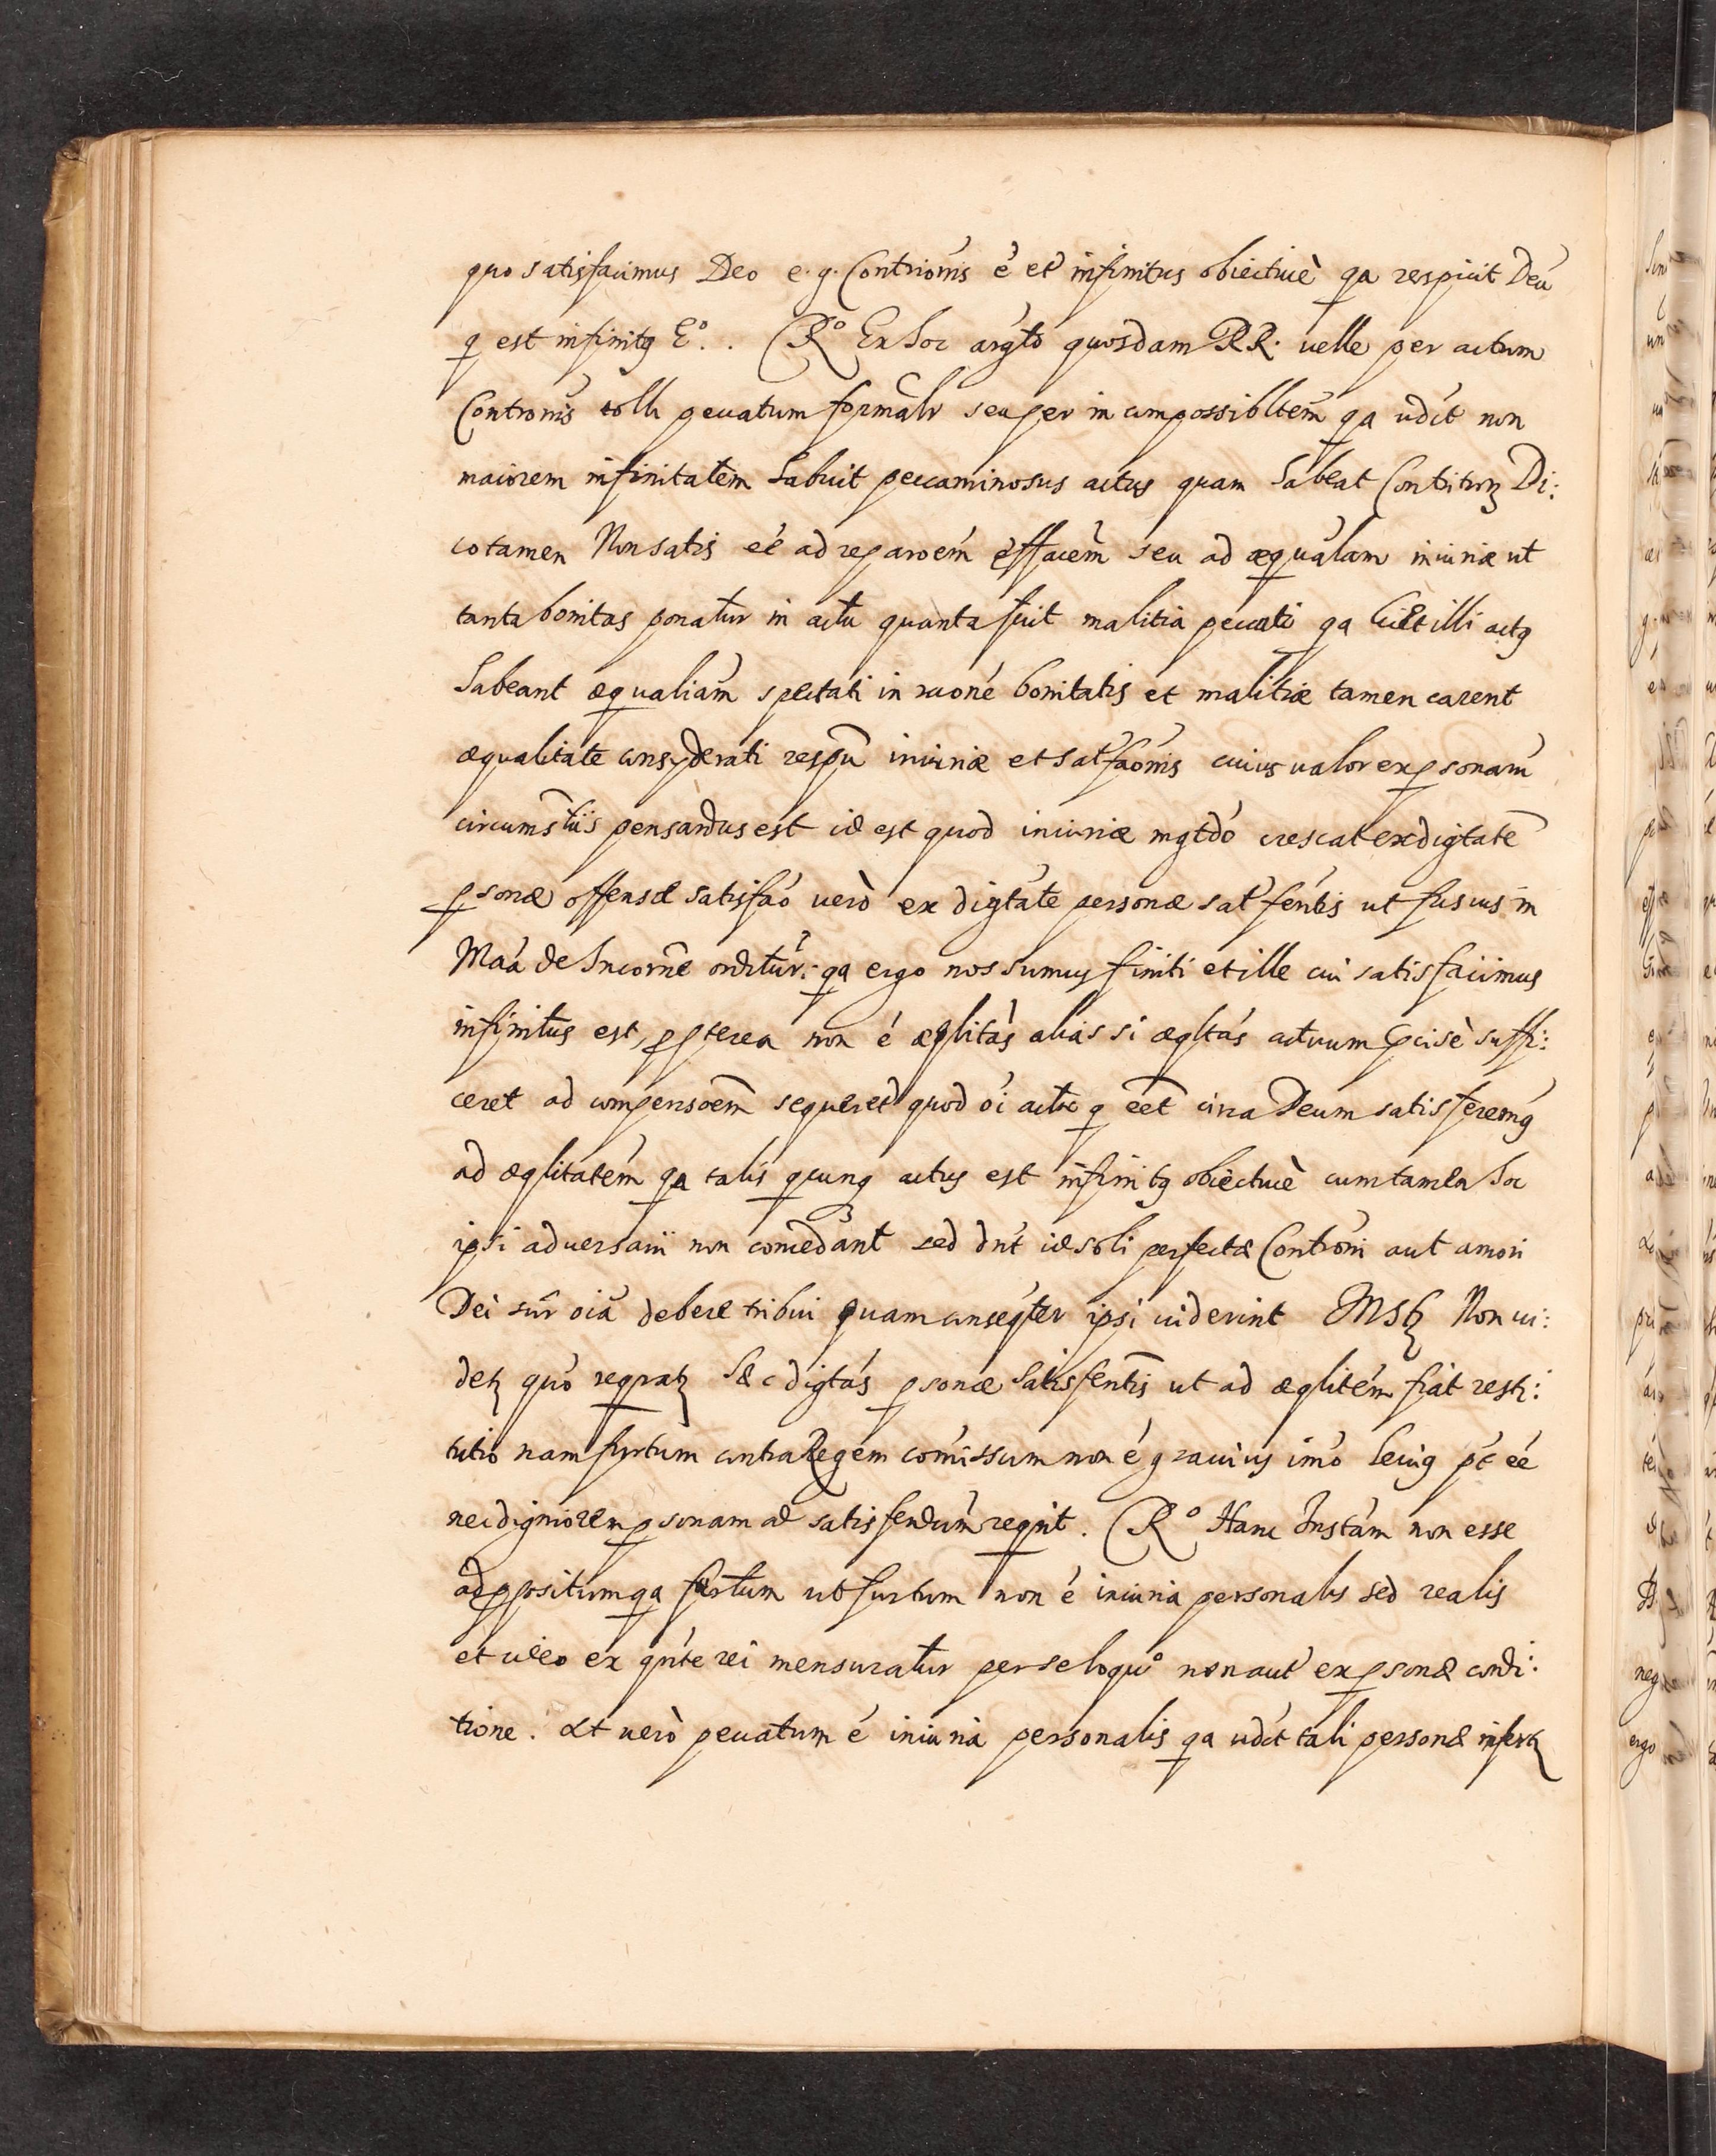 quo satisfacimus Deo e.g. Contriónis é et infinitus obiectiuè qa respicit Deú
q est infinitq Eº. . Rº Ex hoc argtó quosdam RR. uelle per actum
Contronis tolli peccatum formalr seu per incompossibltem qa udét non
maiorem infinitatem habuit peccaminosus actus quam habeat Contritioz Di:
co tamen Non satis eé ad reparoém efficem seu ad æqualam iniuriæ ut
tanta bonitas ponatur in actu quanta fuit malitia peccati qa licet illi actq
habeant æqualiam spectati in raoné bonitatis et malitiæ tamen carent
æqualitate consyderati respu iniuriæ et satfaónis cuius ualor ex psonarú
circumstiis pensandus est id est quod iniuriæ mgtdó crescat ex digtate
psonæ offensæ satisfaó ueró ex digtáte personæ satfentis ut fusius in
Maá de Incorne ondtur: qa ergo nos sumus finiti et ille cui satisfacimus
infinitus est, ppterea non é æqlitás alias si æqltás actuum pcisè suffi:
ceret ad compensoém sequeret quod oí actu q eét circa Deum satisferemq
ad æqlitatém qa talis qcunq actus est infinitq obiectiuè cum tamen hoc
ipsi aduersarii non concedant sed dnt id soli perfectæ Contróni aut amori
Dei sur oiá debere tribui quam conseqter ipsi uiderint Instz Non ui:
detz quò reqratz hæc digtás psonæ satisfentis ut ad æqlitém fiat resti:
tutio nam furtum contra Regem comissum non é grauius imó leuiq pt eé
nec digniorem psonam ad satisfendum reqrit. Rº Hanc Instám non esse
ad ppositum qa furtum ut furtum non é iniuria personalis sed realis
et ideo ex qnte rei mensuratur per se loquº non aut ex psonæ condi:
tione. At uerò peccatum é iniuria personalis qa udét tali personæ infertz